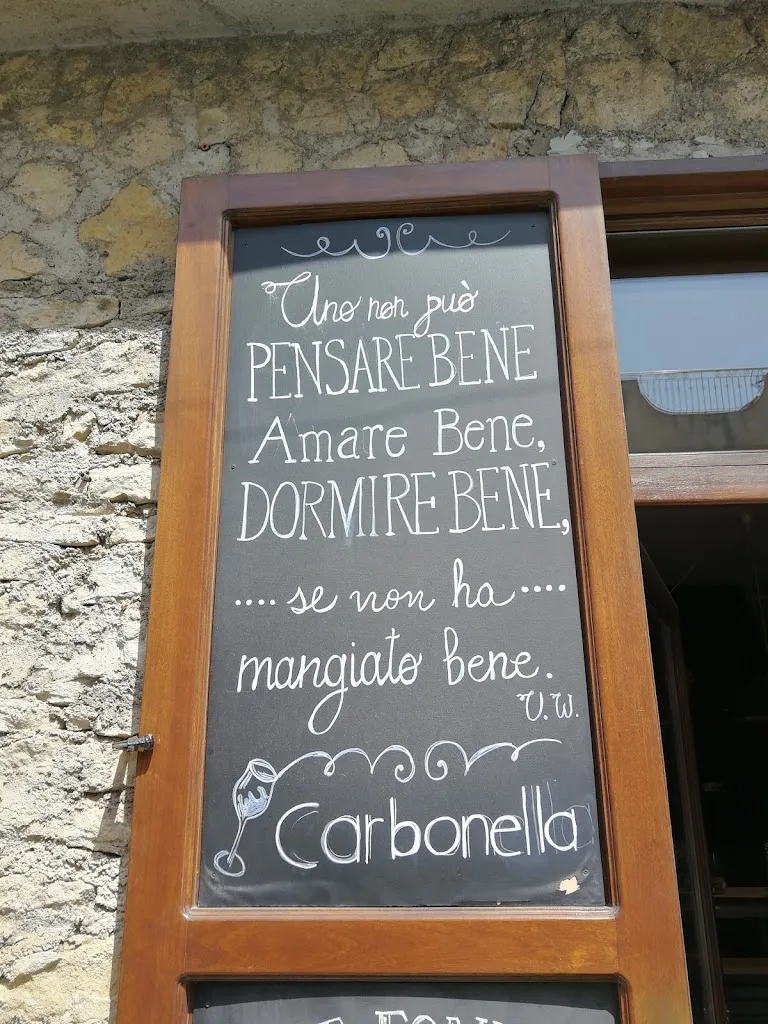 Uno non può
PENSARE BENE
Amare Bene,
DORMIRE BENE,
.... se non ha ....
mangiato bene.
V.W.
Carbonella